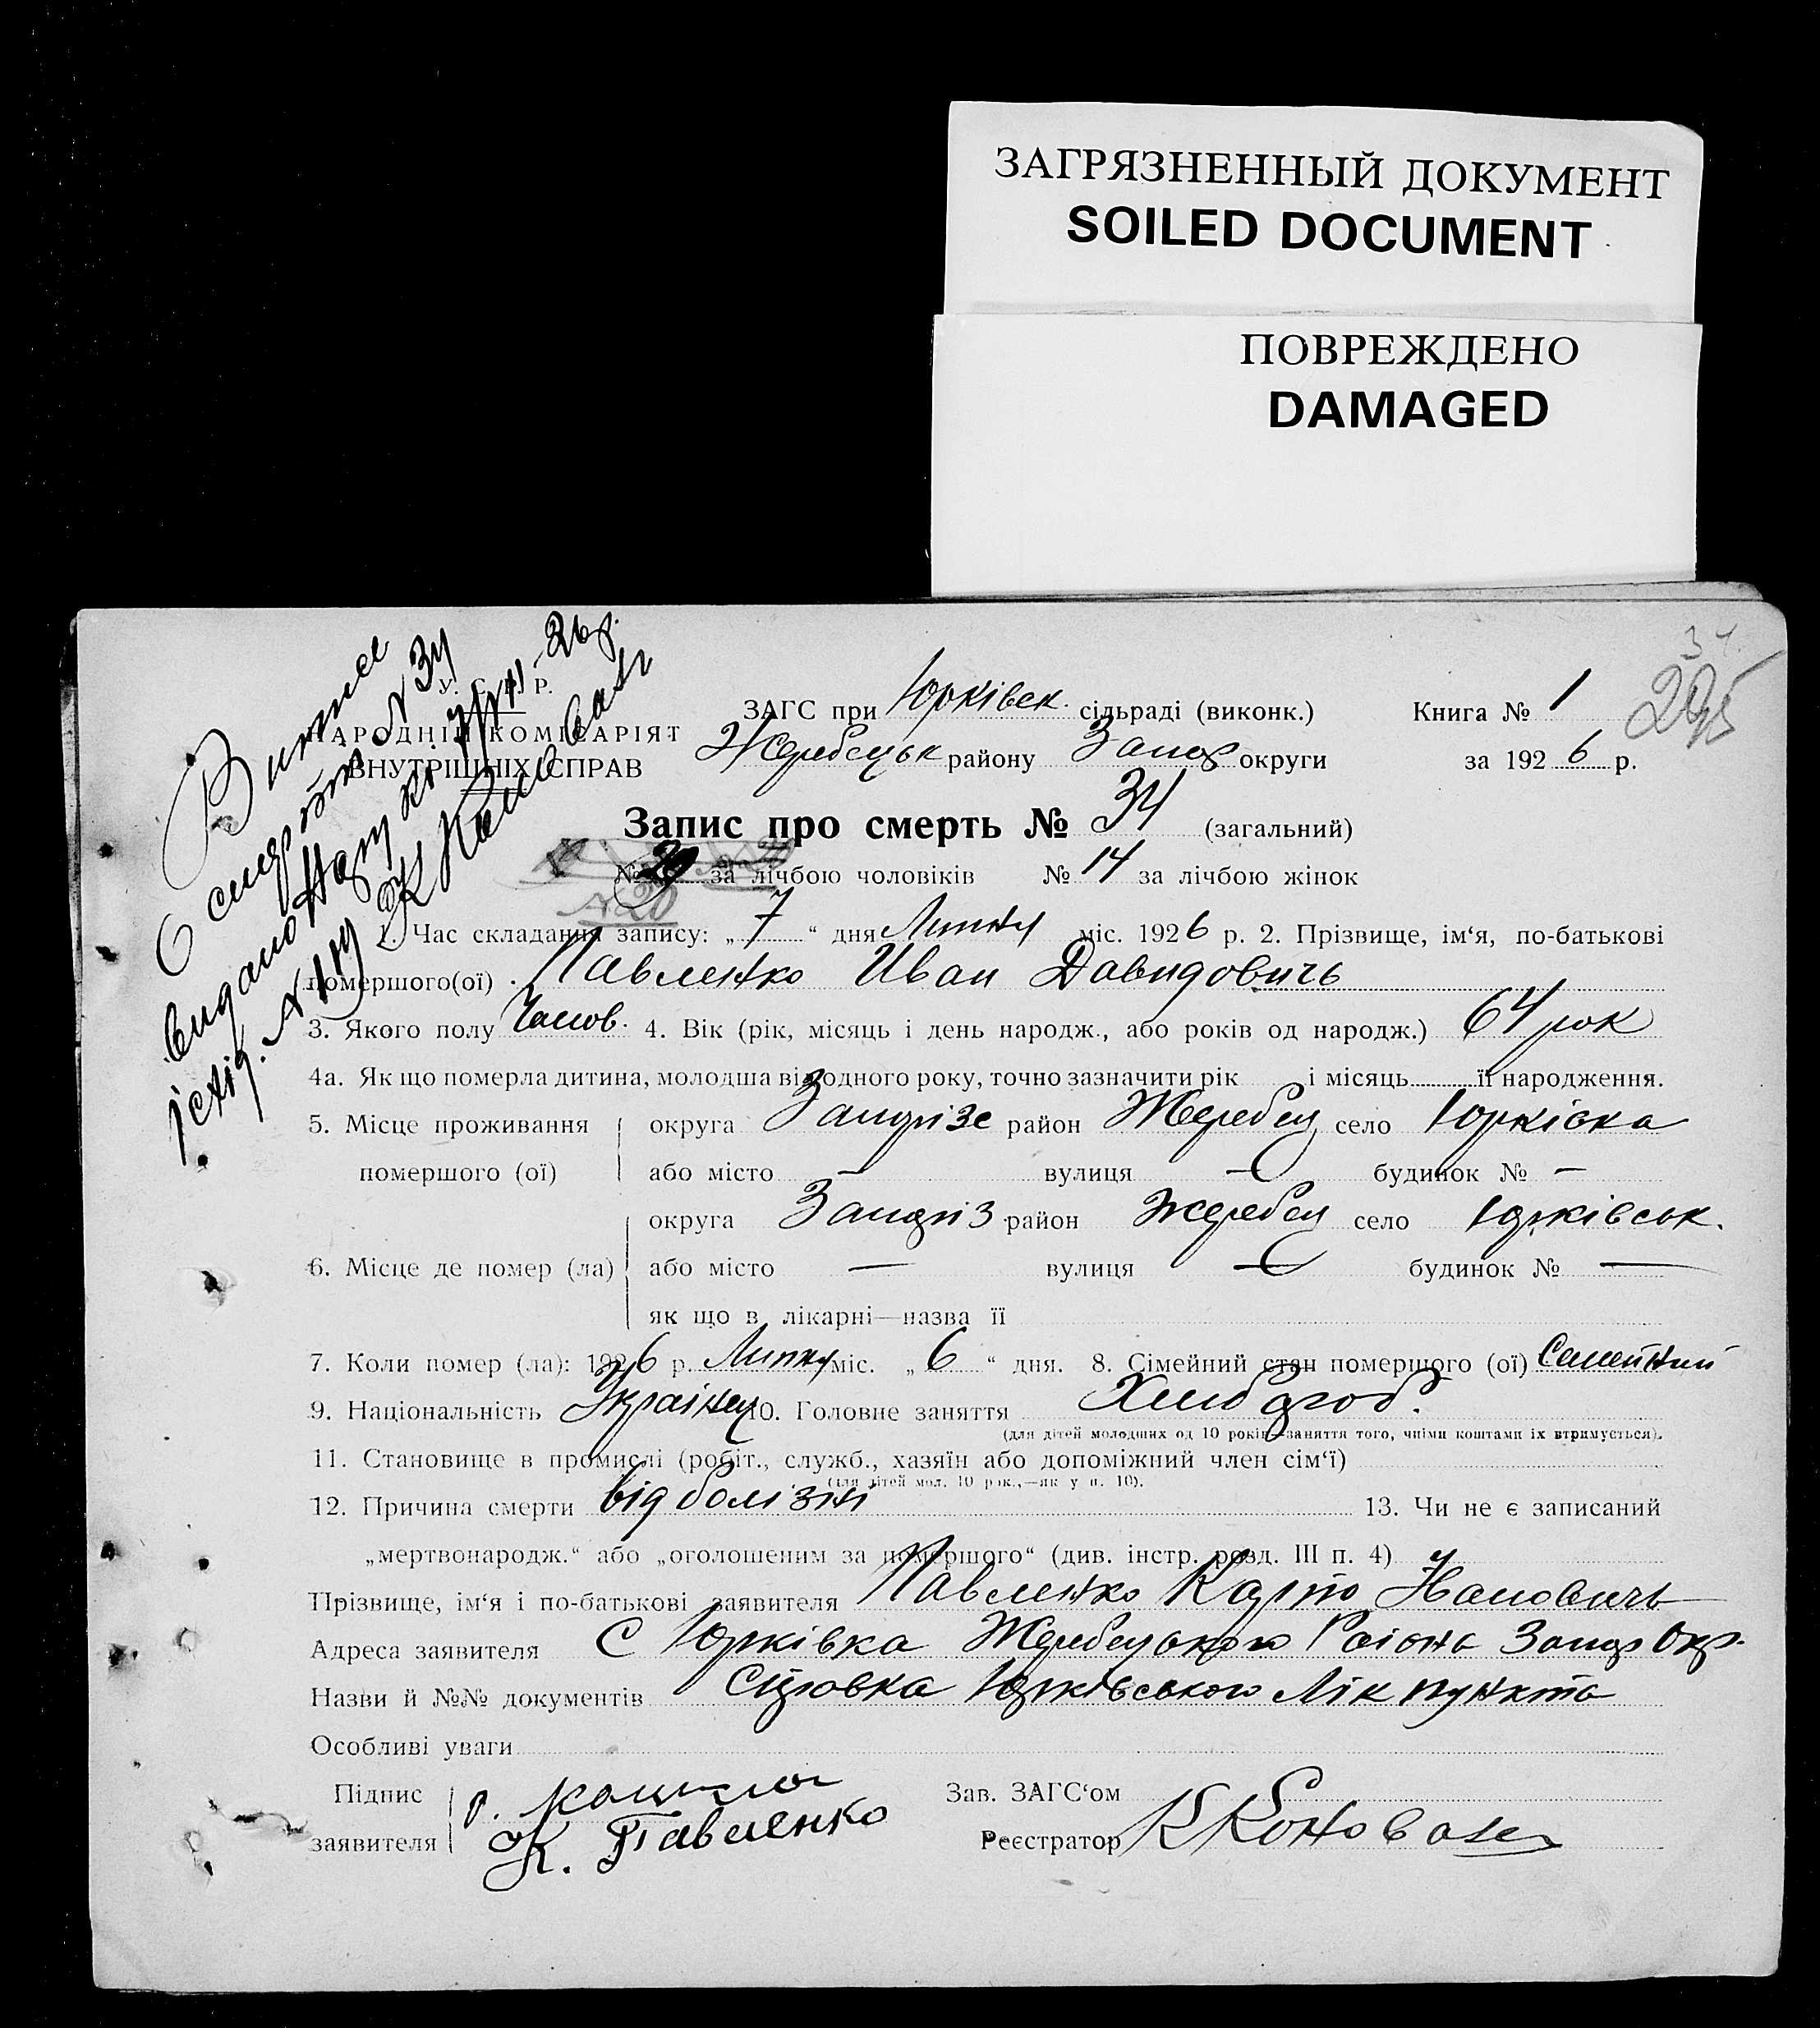 ЗАГРЯЗНЕННЫЙ ДОКУМЕНТ
SOILED DOCUMENT
ПОВРЕЖДЕНО
DAMAGED
34.
295
У. С. Р. Р.
НАРОДНІЙ КОМІСАРІЯТ
ВНУТРІШНІХ СПРАВ
ЗАГС при Юрківск. сільраді (виконк.) Книга № 1
Жеребецьк району Запор округи за 1926 р.
Запис про смерть № 34 (загальний)
№ за лічбою чоловіків № 14 за лічбою жінок
№ 20
1. Час складання запису: „7“ дня Липня міс. 1926 р. 2. Прізвище, ім‘я, по-батькові
помершого(ої) Павленко Иван Давидовичь
3. Якого полу Чолов. 4. Вік (рік, місяць і день народж., або років од народж.) 64 рок
4а. Як що померла дитина, молодша від одного року, точно зазначити рік і місяць її народження.
5. Місце проживання округа Запорізе район Жеребец село Юрківка
помершого (ої) або місто — вулиця — будинок № —
округа Запоріз район Жеребец село Юрківськ.
6. Місце де помер (ла) або місто — вулиця — будинок № —
як що в лікарні—назва її
7. Коли помер (ла): 1926 р. Липня міс. „6“ дня. 8. Сімейний стан помершого (ої) Семейний
9. Національність Українец 10. Головне заняття Хлибороб.
(для дітей молодших од 10 років—заняття того, чиїми коштами їх втримується).
11. Становище в промислі (робіт., служб., хазяїн або допоміжний член сім‘ї)
(для дітей мол. 10 рок.,—як у п. 10).
12. Причина смерти від болізні 13. Чи не є записаний
„мертвонародж.“ або „оголошеним за помершого“ (див. інстр. розд. III п. 4)
Прізвище, ім‘я і по-батькові заявителя Павленко Карпо Ивановичь
Адреса заявителя С Юрківка Жеребецького Раіона Запор Окр.
Назви й №№ документів Юрківського Лік пункта
Особливі уваги
Підпис Зав. ЗАГС‘ом
заявителя К. Павленко Реєстратор К Коновалец